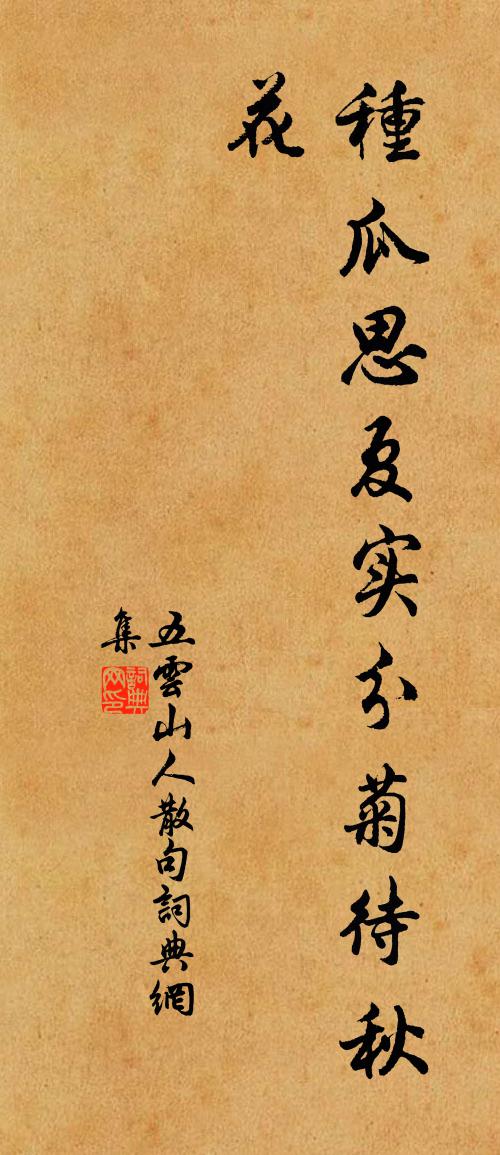 種瓜思夏实分菊待秋
花
五雲山人散句詞典網
集
詞典
网印